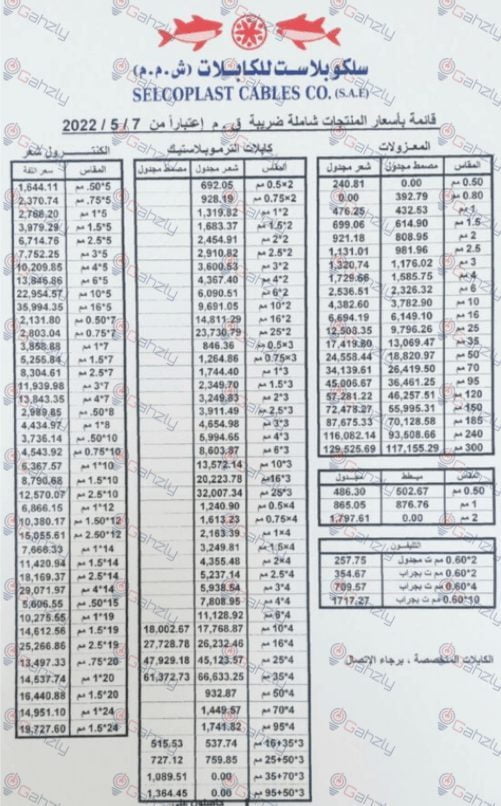 سلكوبلاست للكابلات (ش.م.م)
SELCOPLAST CABLES CO. (S.A.E)
قائمة بأسعار المنتجات شاملة ضريبة ق . م إعتباراً من 7 / 5 / 2022
المعزولات
المقاس مصمط مجدول شعر مجدول
0.50 مم 0.00 240.81
0.80 مم 392.79 0.00
1 مم 432.53 476.25
1.5 مم 614.90 699.06
2 مم 808.95 921.18
2.5 مم 981.96 1,131.01
3 مم 1,176.02 1,320.74
4 مم 1,585.75 1,729.66
6 مم 2,326.32 2,536.51
10 مم 3,782.90 4,382.60
16 مم 6,149.10 6,694.19
25 مم 9,796.26 12,508.35
35 مم 13,069.47 17,419.80
50 مم 18,820.97 24,558.44
70 مم 26,419.50 34,139.61
95 مم 36,461.25 45,006.67
120 مم 46,257.51 57,281.22
150 مم 55,995.31 72,478.27
185 مم 70,128.58 87,675.33
240 مم 93,508.66 116,082.14
300 مم 117,155.29 129,525.69
مبطط مجدول
0.50 مم 502.67 486.30
1 مم 876.76 865.05
2 مم 0.00 1,797.61
التليفون
0.60*2 مم ت مجدول 257.75
0.60*2 مم ت بجراب 354.67
0.60*4 مم ت بجراب 709.57
0.60*10 مم ت بجراب 1717.27
الكابلات المتخصصة ، برجاء الاتصال
كابلات الترموبلاستيك
المقاس شعر مجدول مصمط مجدول
0.5×2 مم 692.05
0.75×2 مم 928.19
1*2 مم 1,319.82
1.5*2 مم 1,683.37
2*2 مم 2,454.91
2.5*2 مم 2,910.82
3*2 مم 3,600.53
4*2 مم 4,367.40
6*2 مم 6,090.51
10*2 مم 9,691.05
16*2 مم 14,811.29
25*2 مم 23,730.79
0.5×3 مم 846.36
0.75×3 مم 1,264.86
1*3 مم 1,744.40
1.5*3 مم 2,349.70
2*3 مم 3,249.83
2.5*3 مم 3,911.49
3*3 مم 4,654.98
4*3 مم 5,994.65
6*3 مم 8,603.87
10*3 مم 13,572.14
16*3 مم 20,223.78
25*3 مم 32,007.34
0.5×4 مم 1,240.90
0.75×4 مم 1,613.23
1×4 مم 2,163.39
1.5×4 مم 3,249.81
2×4 مم 4,355.48
2.5*4 مم 5,237.14
3*4 مم 5,938.54
4*4 مم 7,808.95
6*4 مم 11,128.92
10*4 مم 17,768.87 18,002.67
16*4 مم 26,232.46 27,728.78
25*4 مم 45,123.57 47,929.18
35*4 مم 66,633.25 61,372.73
50*4 مم 932.87
70*4 مم 1,449.57
95*4 مم 1,741.82
16+35*3 مم 537.74 515.53
25+50*3 مم 759.85 727.12
35+70*3 مم 0.00 1,089.51
50+95*3 مم 0.00 1,364.45
الكنترول شعر
المقاس سعر اللفة
.50*5 مم 1,644.11
.75*5 مم 2,370.74
1*5 مم 2,768.20
1.5*5 مم 3,979.29
2.5*5 مم 6,714.76
3*5 مم 7,752.25
4*5 مم 10,209.85
6*5 مم 13,846.86
10*5 مم 22,954.57
16*5 مم 35,994.35
0.50*7 مم 2,131.80
0.75*7 مم 2,803.04
1*7 مم 3,858.88
1.5*7 مم 5,255.84
2.5*7 مم 8,304.61
3*7 مم 11,939.98
4*7 مم 13,843.35
.50*8 مم 2,989.85
1*8 مم 4,434.97
.50*10 مم 3,736.14
0.75*10 مم 4,543.92
1*10 مم 6,367.57
1.5*10 مم 8,790.68
2.5*10 مم 12,570.07
1*12 مم 6,866.15
1.50*12 مم 10,380.17
2.50*12 مم 15,055.61
1*14 مم 7,666.33
1.5*14 مم 11,420.94
2.5*14 مم 18,169.37
4*14 مم 29,071.97
.50*15 مم 5,606.55
1*19 مم 10,275.55
1.5*19 مم 14,612.56
2.5*19 مم 25,266.86
.75*20 مم 13,497.33
1*20 مم 14,537.74
1.5*20 مم 16,440.88
1*24 مم 14,951.10
1.5*24 مم 19,727.60
Gahzly